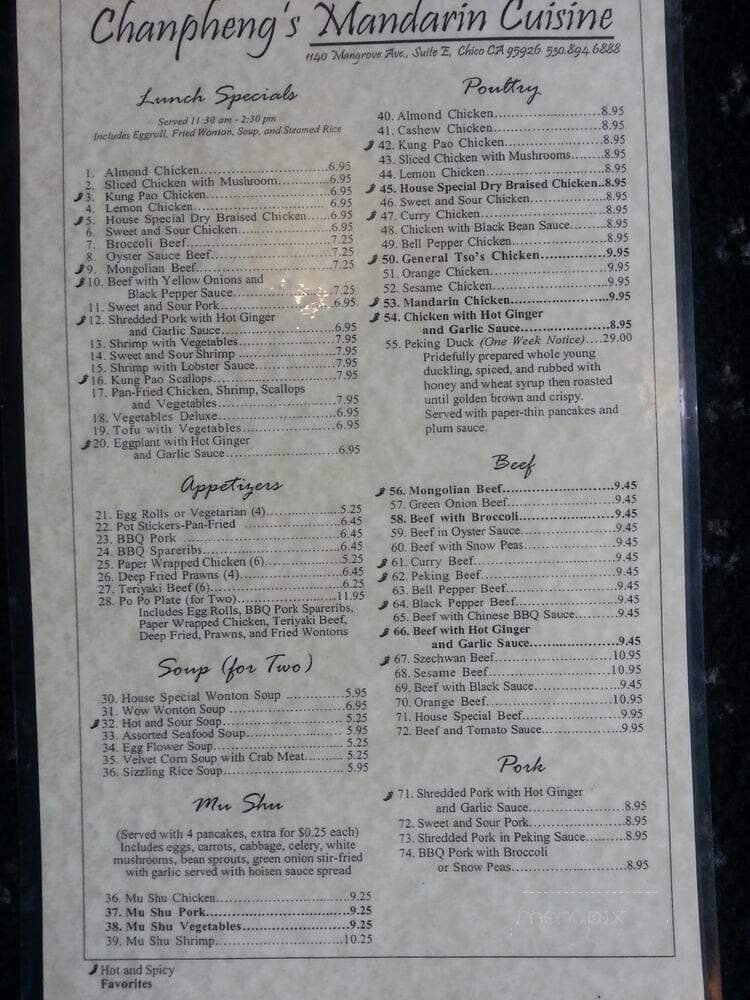 Chanpheng's Mandarin Cuisine
1140 Mangrove Ave., Suite E, Chico CA 95926 530.894.6888
Lunch Specials
Served 11:30 am - 2:30 pm
Includes Eggroll, Fried Wonton, Soup, and Steamed Rice
1. Almond Chicken..............................6.95
2. Sliced Chicken with Mushroom.............6.95
3. Kung Pao Chicken...........................6.95
4. Lemon Chicken.............................. 6.95
5. House Special Dry Braised Chicken......6.95
6. Sweet and Sour Chicken....................6.95
7. Broccoli Beef.................................7.25
8. Oyster Sauce Beef...........................7.25
9. Mongolian Beef..............................7.25
10. Beef with Yellow Onions and
Black Pepper Sauce.......................7.25
11. Sweet and Sour Pork.......................6.95.
12. Shredded Pork with Hot Ginger
and Garlic Sauce..........................6.95
13. Shrimp with Vegetables....................7.95
14. Sweet and Sour Shrimp ...................7.95
15. Shrimp with Lobster Sauce................7.95
16. Kung Pao Scallops..........................7.95
17. Pan-Fried Chicken, Shrimp, Scallops
and Vegetables............................7.95
18. Vegetables Deluxe..........................6.95
19. Tofu with Vegetables.......................6.95
20. Eggplant with Hot Ginger
and Garlic Sauce..........................6.95
Appetizers
21. Egg Rolls or Vegetarian (4)................5.25
22. Pot Stickers-Pan-Fried .....................6.45
23. BBQ Pork ...................................6.45
24. BBQ Spareribs...............................6.45
25. Paper Wrapped Chicken (6)...............5.25
26. Deep Fried Prawns (4)......................6.45
27. Teriyaki Beef (6).............................6.25
28. Po Po Plate (for Two).....................11.95
Includes Egg Rolls, BBQ Pork Spareribs,
Paper Wrapped Chicken, Teriyaki Beef,
Deep Fried, Prawns, and Fried Wontons
Soup (for Two)
30. House Special Wonton Soup ............5.95
31. Wow Wonton Soup ........................6.95
32. Hot and Sour Soup......................... 5.25
33. Assorted Seafood Soup.................... 5.95
34. Egg Flower Soup........................... 5.25
35. Velvet Corn Soup with Crab Meat....... 5.25
36. Sizzling Rice Soup......................... 5.95
Mu Shu
(Served with 4 pancakes, extra for $0.25 each)
Includes eggs, carrots, cabbage, celery, white
mushrooms, bean sprouts, green onion stir-fried
with garlic served with hoisen sauce spread
36. Mu Shu Chicken............................9.25
37. Mu Shu Pork................................9.25
38. Mu Shu Vegetables........................9.25
39. Mu Shu Shrimp...........................10.25
Poultry
40. Almond Chicken........................8.95
41. Cashew Chicken........................8.95
42. Kung Pao Chicken......................8.95
43. Sliced Chicken with Mushrooms.......8.95
44. Lemon Chicken.........................8.95
45. House Special Dry Braised Chicken..8.95
46. Sweet and Sour Chicken...............8.95
47. Curry Chicken..........................8.95
48. Chicken with Black Bean Sauce.......8.95
49. Bell Pepper Chicken....................8.95
50. General Tso's Chicken.................9.95
51. Orange Chicken.........................9.95
52. Sesame Chicken........................9.95
53. Mandarin Chicken......................9.95
54. Chicken with Hot Ginger
and Garlic Sauce......................8.95
55. Peking Duck (One Week Notice)....29.00
Pridefully prepared whole young
duckling, spiced, and rubbed with
honey and wheat syrup then roasted
until golden brown and crispy.
Served with paper-thin pancakes and
plum sauce.
Beef
56. Mongolian Beef.........................9.45
57. Green Onion Beef.......................9.45
58. Beef with Broccoli......................9.45
59. Beef in Oyster Sauce...................9.45
60. Beef with Snow Peas...................9.45
61. Curry Beef...............................9.45
62. Peking Beef..............................9.45
63. Bell Pepper Beef........................9.45
64. Black Pepper Beef......................9.45
65. Beef with Chinese BBQ Sauce.........9.45
66. Beef with Hot Ginger
and Garlic Sauce......................9.45
67. Szechwan Beef.........................10.95
68. Sesame Beef............................10.95
69. Beef with Black Sauce..................9.45
70. Orange Beef............................10.95
71. House Special Beef.....................9.95
72. Beef and Tomato Sauce................9.95
Pork
71. Shredded Pork with Hot Ginger
and Garlic Sauce......................8.95
72. Sweet and Sour Pork...................8.95
73. Shredded Pork in Peking Sauce........8.95
74. BBQ Pork with Broccoli
or Snow Peas...........................8.95
menupix
Hot and Spicy
Favorites